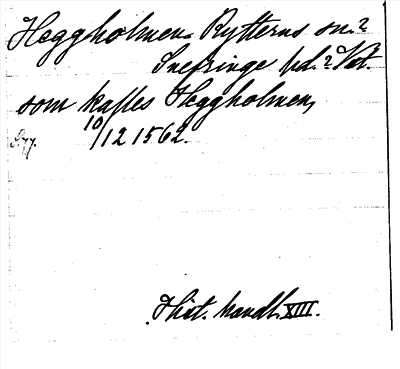 Heggholmen. Rytterns sn.?
Snefringe hd.? Vstm.
som kalles Heggholmen,
10/12 1562.
S. 77.
Hist. handl. XIII.